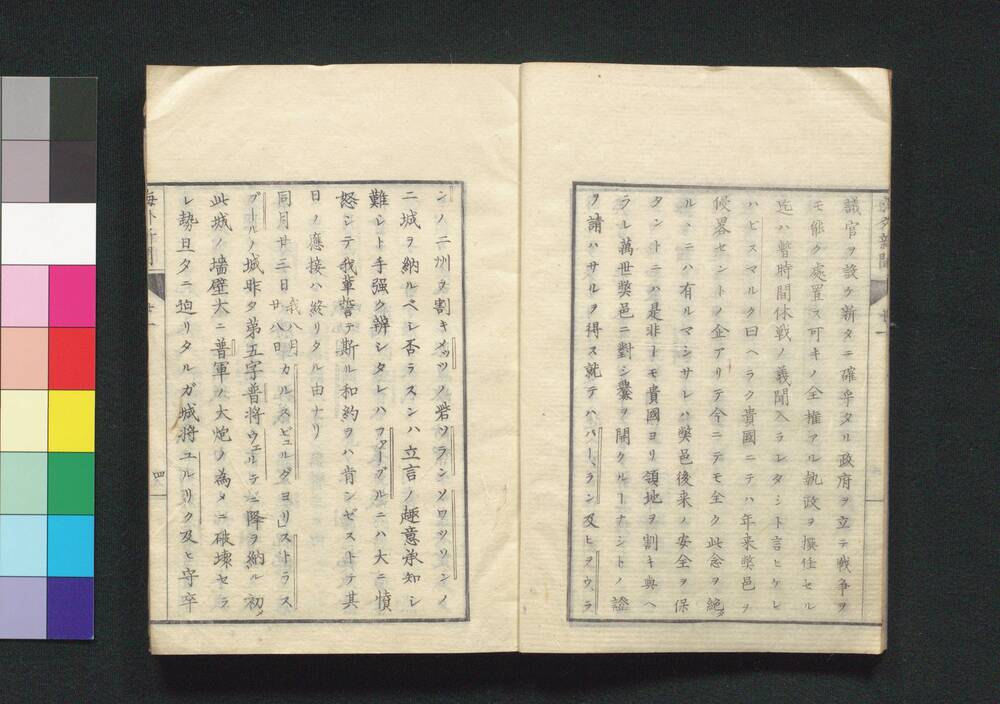 議官ヲ設ケ新タニ確乎タル政府ヲ立テ戦争ヲ
モ能ク處置ス可キノ全権アル執政ヲ撰任セル
迄ハ暫時間休戦ノ義聞入ラレタシト言ヒケレ
ハビスマルク曰ヘラク貴國ニテハ年来獘邑ヲ
侵畧セントノ企アリテ今ニテモ全ク此念ヲ絶
ル丶ニハ有ルマシサレハ獘邑後来ノ安全ヲ保
タントニハ是非トモ貴國ヨリ領地ヲ割キ與ヘ
ラレ萬世獘邑ニ對シ釁ヲ開クルーナシトノ證
ヲ請ハサルヲ得ス就テハバーラン及ヒヲウ、ラ
ンノ二州ヲ割キメッツノ砦ソランソワッソンノ
二城ヲ納ルベシ否ラスンハ立言ノ趣意承知シ
難シト手强ク辨シタレハファーブルニハ大ニ憤
怒シテ我輩誓テ斯ル和約ヲハ肯ンゼストテ其
日ノ應接ハ終リタル由ナリ
同月廿三日 我八月廿八日 カルスビュルグヨリストラス
ブールノ城昨夕第五字普将ウェルデニ降ヲ納ル初メ
此城ノ墻壁大ニ普軍ノ大炮ノ為メニ破壊セラ
レ勢旦夕ニ迫リタルガ城将ユルリク及ヒ守卒
四